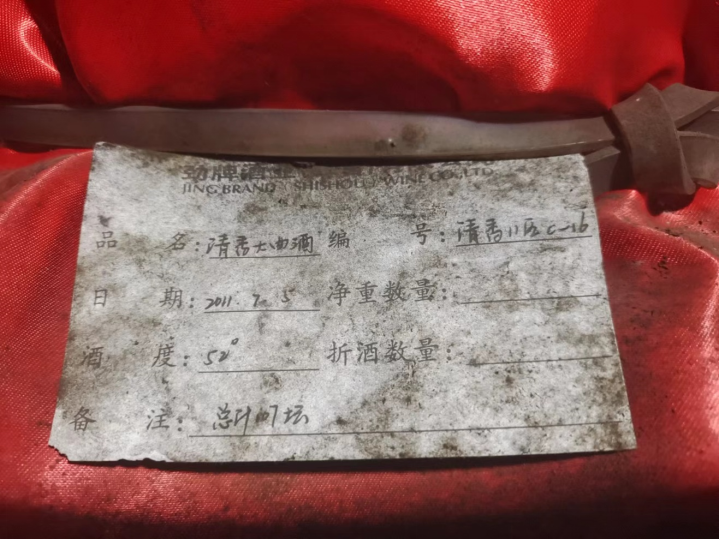 劲牌酒业
JING BRAND SHISHOU WINE CO., LTD
品 名: 清香大曲酒 编 号: 清香11区C-16
日 期: 2011.7.5 净重数量:
酒 度: 52° 折酒数量:
备 注: 总计107坛